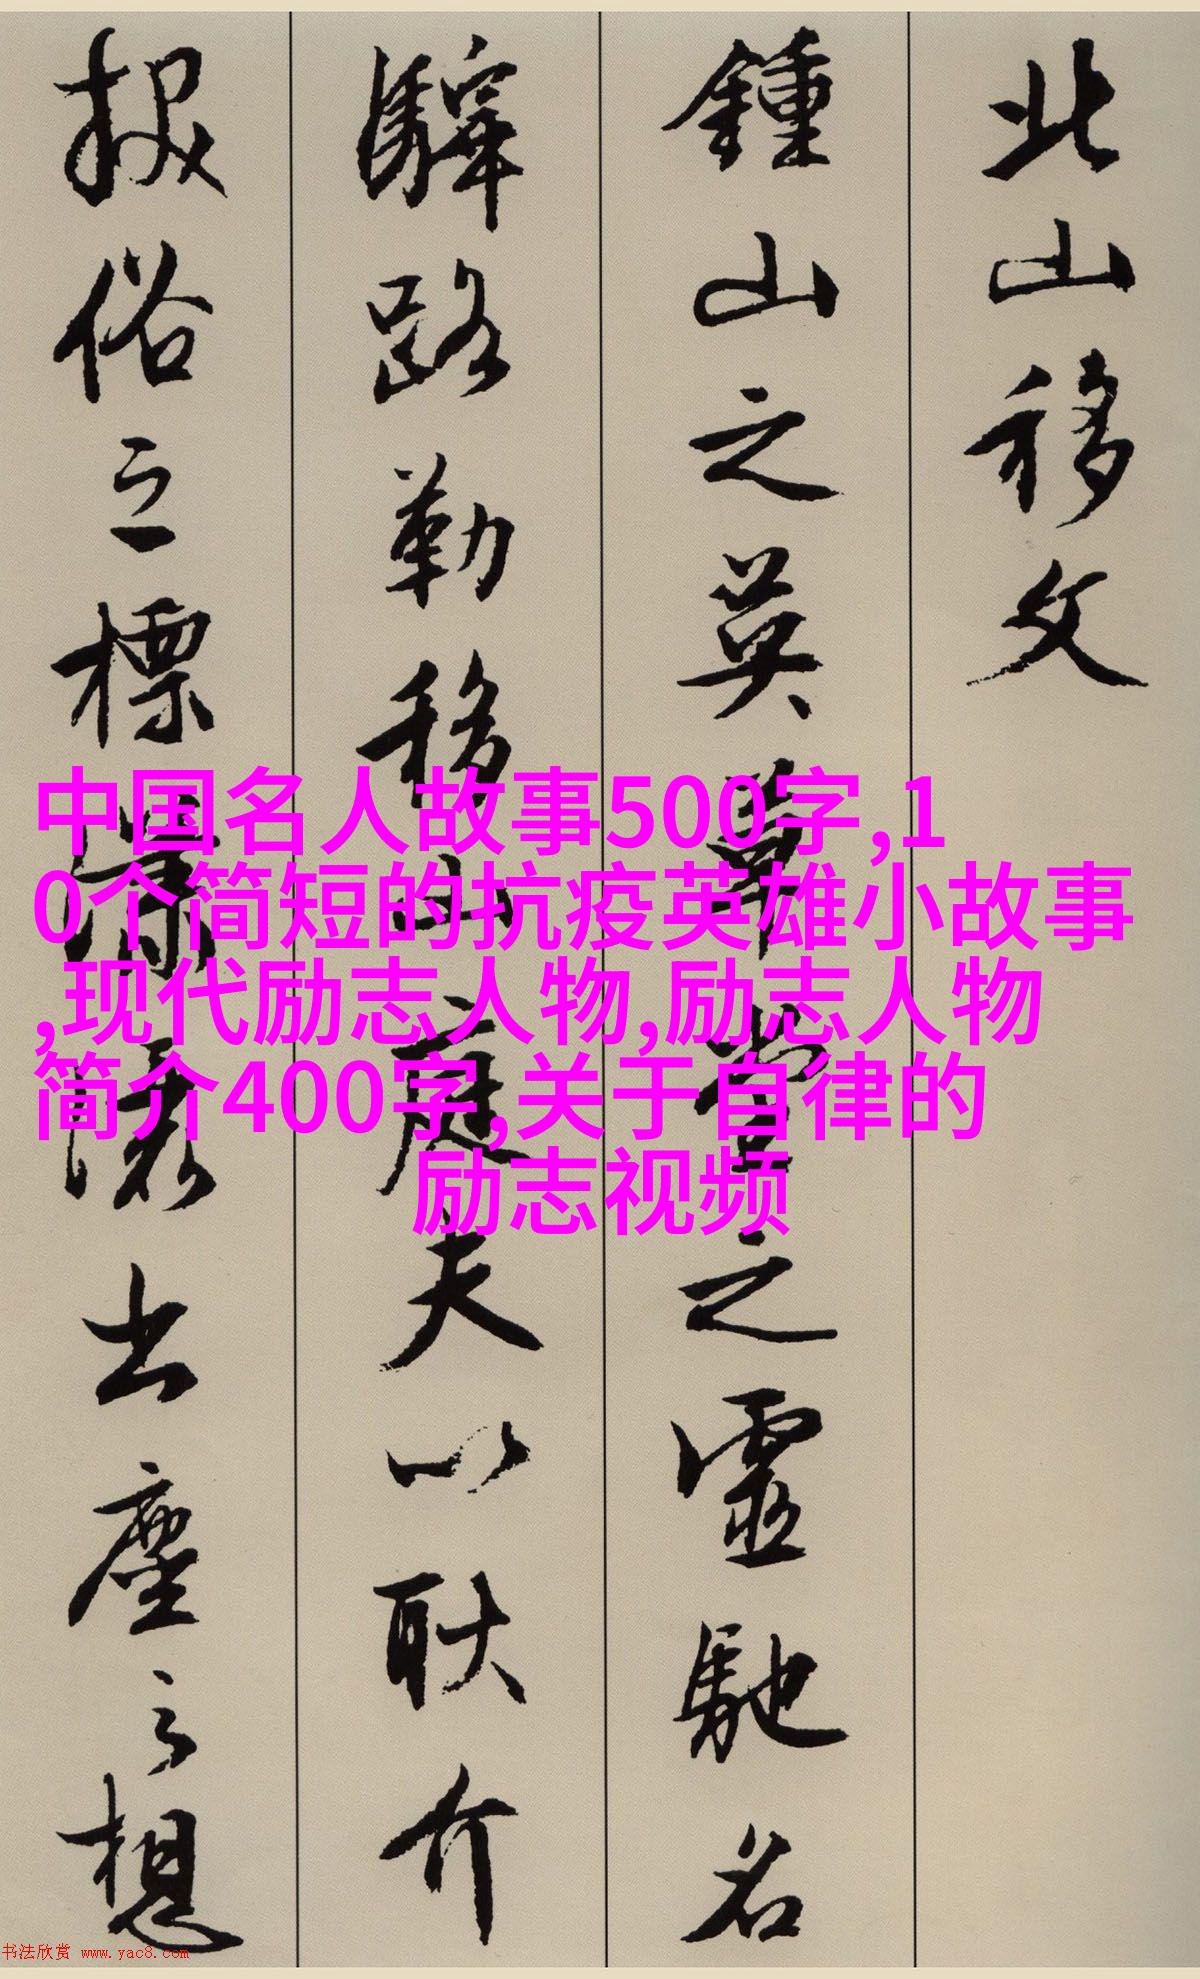 北山移文
鍾山之英草堂之靈馳名
驛路勒移山庭夫以耿介
拔俗之標瀟灑出塵之想
中国名人故事500字,1
0个简短的抗疫英雄小故事
,现代励志人物,励志人物
简介400字,关于自律的
励志视频
书法欣赏 www.yac8.com